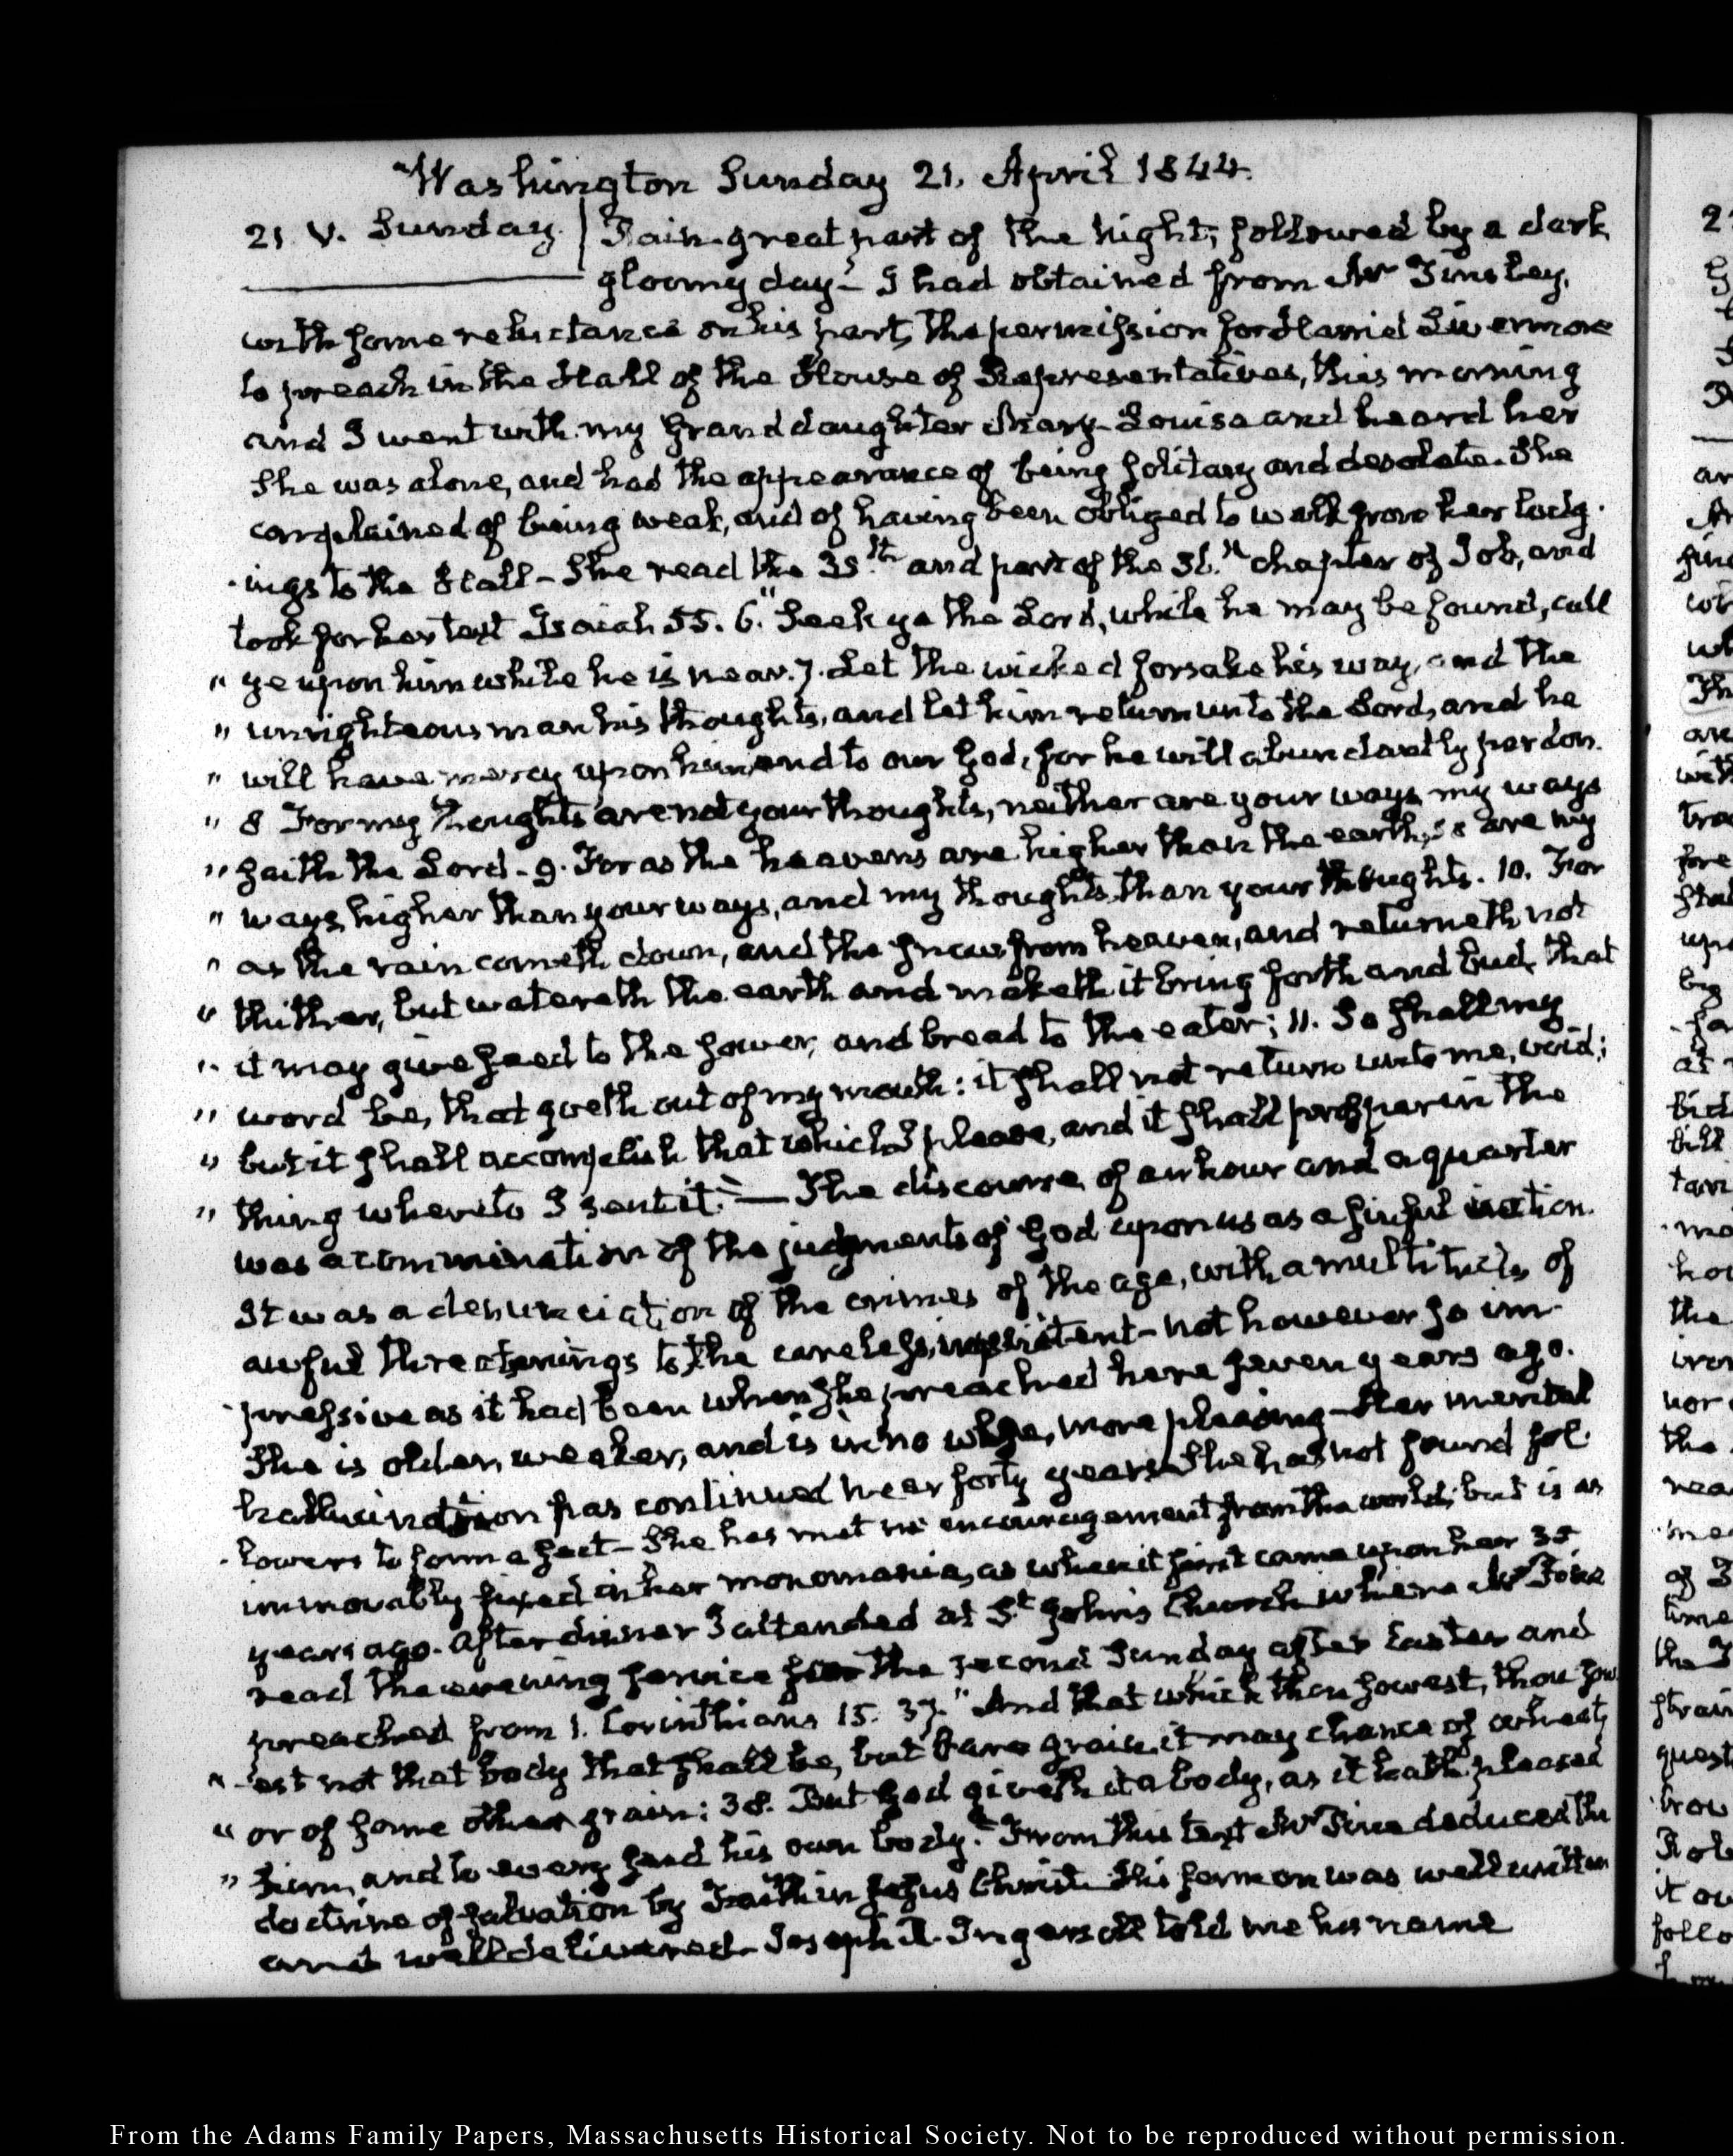 Washington Sunday 21. April 1844.
21. V. Sunday. Rain great part of the night, followed by a dark
gloomy day— I had obtained from Mr Tinsley,
with some reluctance on his part, the permission for Harriet Livermore
to preach in the Hall of the House of Representatives, this morning
and I went with my Granddaughter Mary-Louisa and heard her
She was alone, and had the appearance of being solitary and desolate. She
complained of being weak, and of having been obliged to walk from her lodg-
-ings to the Hall— She read the 35.th and part of the 36.th chapter of Job, and
took for her text Isaiah 55. 6. "Seek ye the Lord, while he may be found, call
" ye upon him while he is near. 7. Let the wicked forsake his way, and the
" unrighteous man his thoughts, and let him return unto the Lord, and he
" will have mercy upon him, and to our God, for he will abundantly pardon.
" 8 For my thoughts are not your thoughts, neither are your ways my ways
" saith the Lord - 9. For as the heavens are higher than the earth, so are my
" ways higher than your ways, and my thoughts than your thoughts. 10. For
" as the rain cometh down, and the snow from heaven, and returneth not
" thither, but watereth the earth and maketh it bring forth and bud, that
" it may give seed to the sower, and bread to the eater; 11. So shall my
" word be, that goeth out of my mouth: it shall not return unto me, void;
" but it shall accomplish that which I please, and it shall prosper in the
" thing whereto I sent it."— The discourse of an hour and a quarter
was a commination of the judgments of God upon us as a sinful nation.
It was a denunciation of the crimes of the age, with a multitude of
awful threatenings to the careless, impenitent- not however so im-
-pressive as it had been when she preached here seven years ago.
She is older, weaker, and is in no wise, more pleasing— Her mental
hallucination has continued near forty years She has not found fol-
-lowers to form a sect— She has met no encouragement from the world; but is as
immovably fixed in her monomania, as when it first came upon her 35
years ago. After dinner I attended at St John's Church where Mr
read the evening service for the second Sunday after Easter and
preached from 1. Corinthians 15. 37. "And that which thou sowest, thou sow
" -est not that body that shall be, but bare grain, it may chance of wheat,
" or of some other grain: 38. But God giveth it a body, as it hath pleased
" him, and to every seed his own body." From this text Mr deduced the
doctrine of salvation by Faith in Jesus Christ. His sermon was well written
and well delivered— Joseph R. Ingersoll told me his name
From the Adams Family Papers, Massachusetts Historical Society. Not to be reproduced without permission.